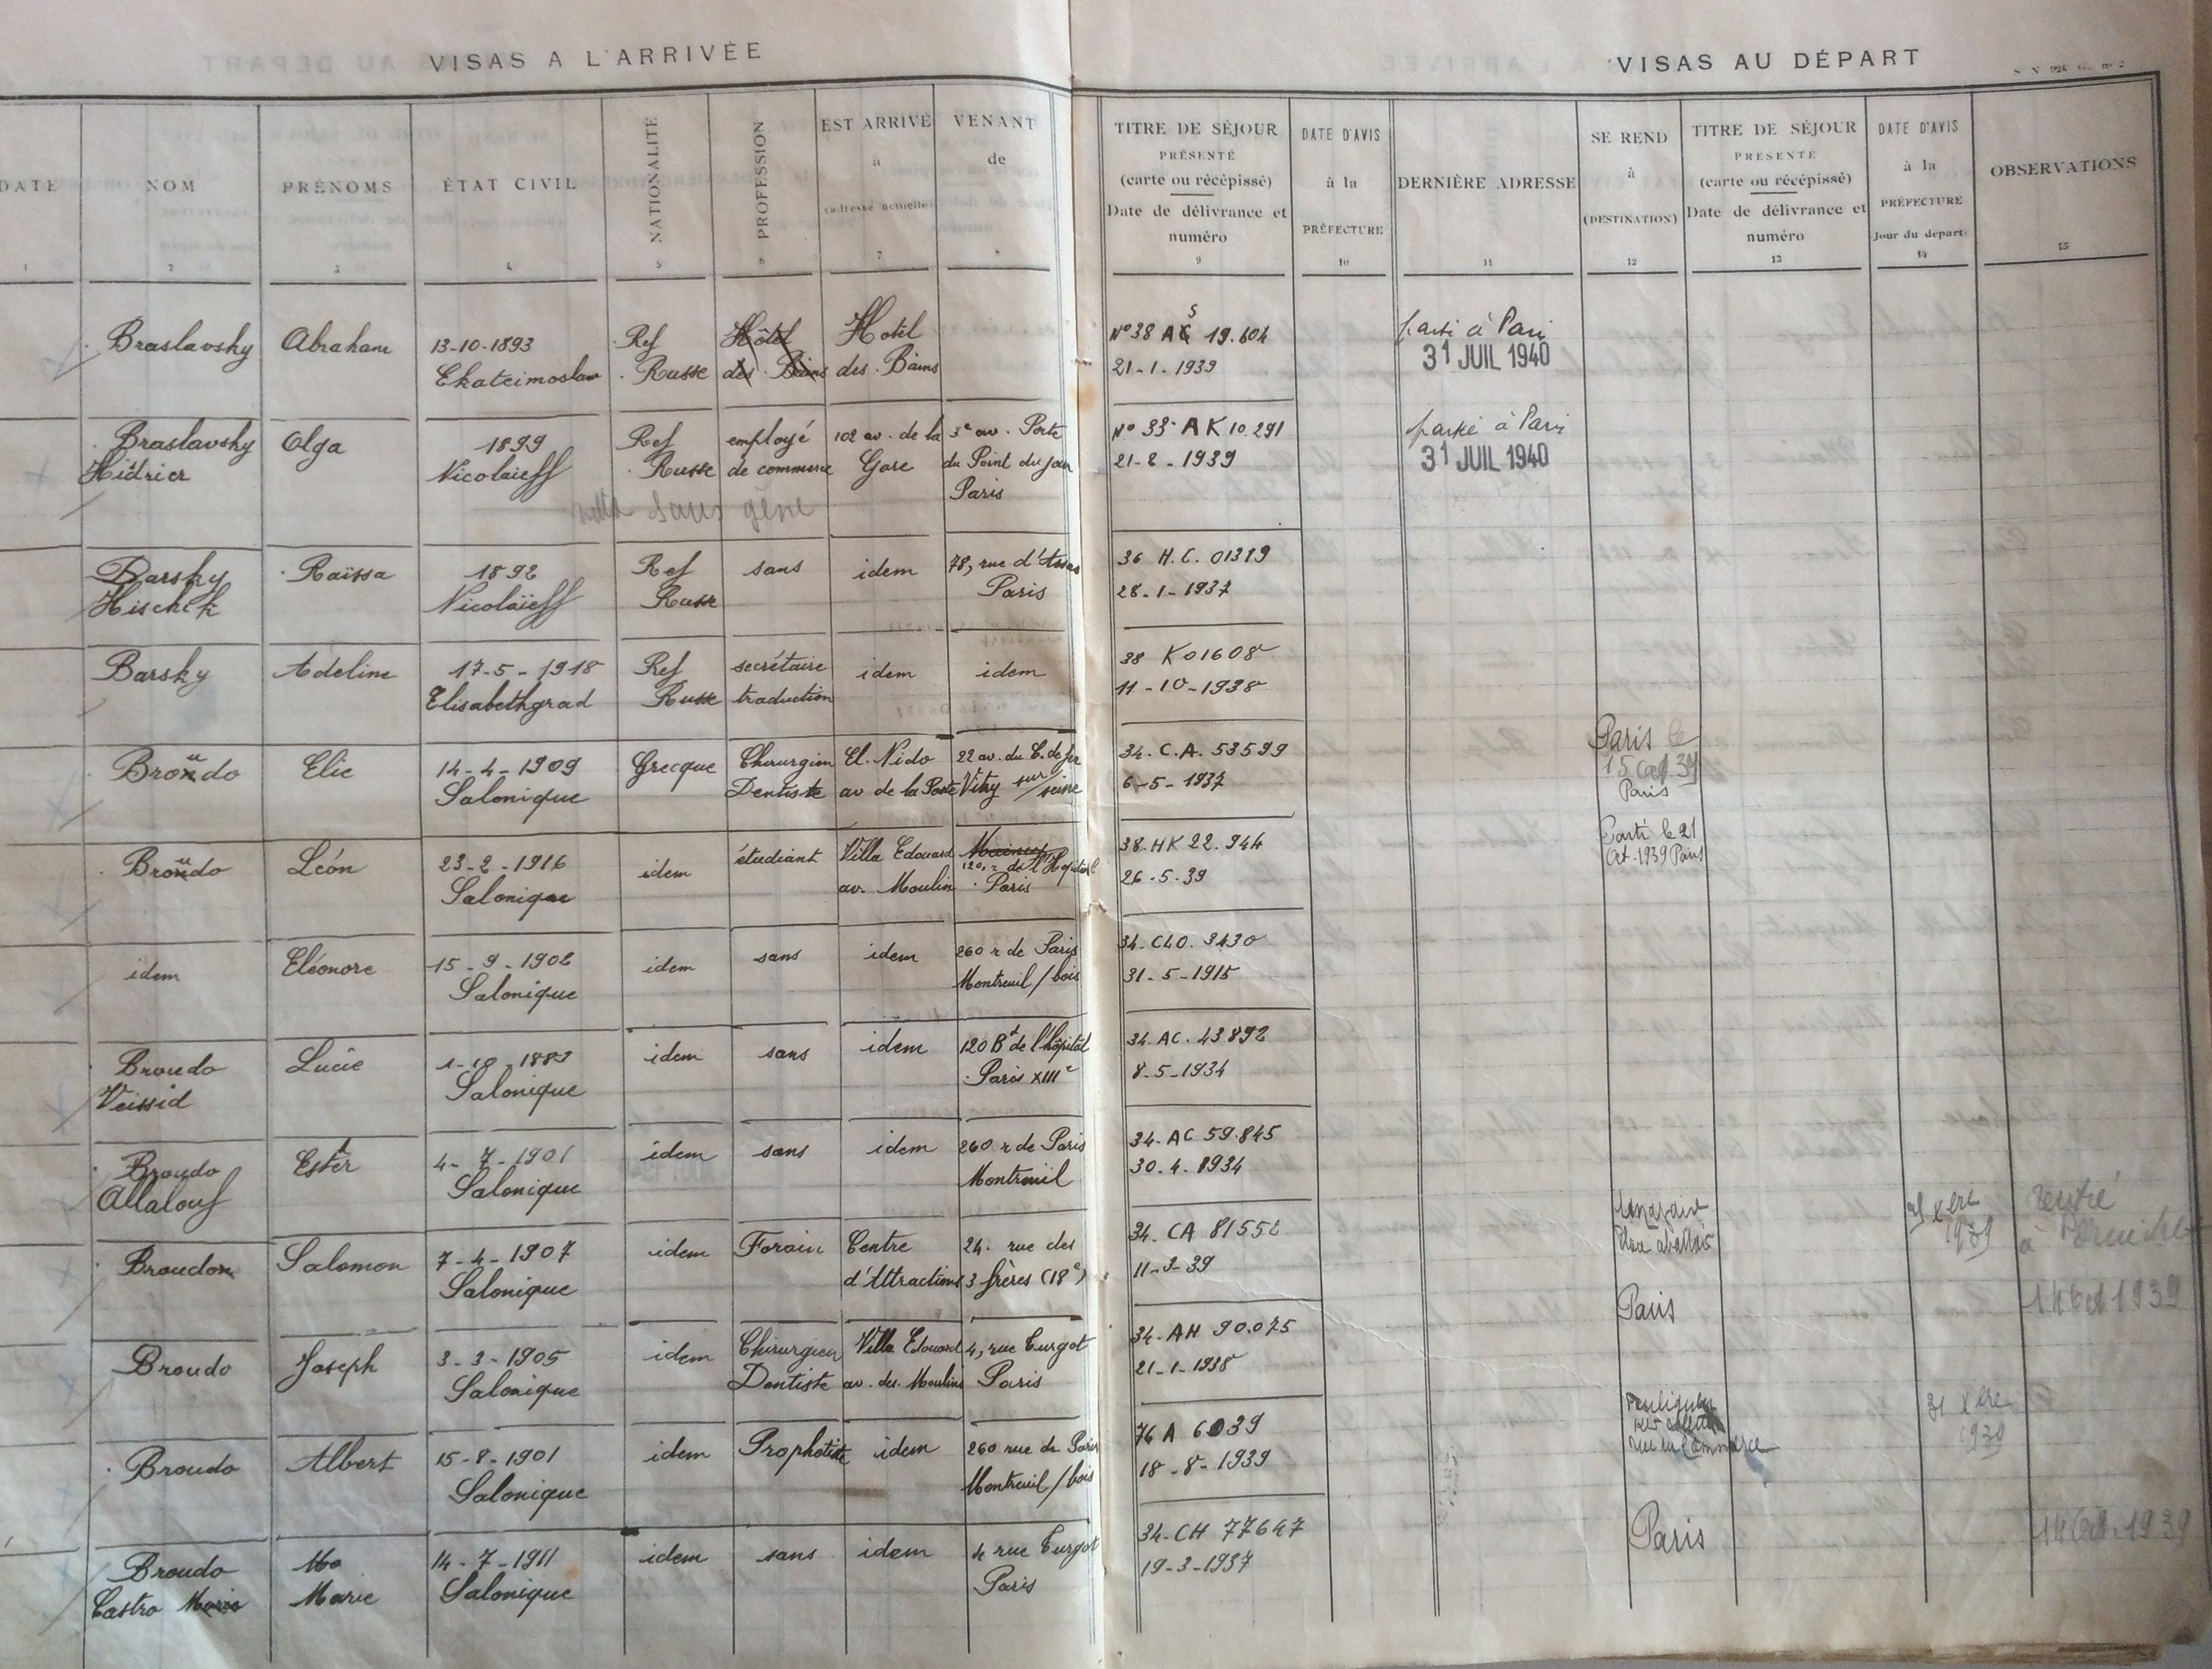 VISAS A L'ARRIVÉE
VISAS AU DÉPART
DATE
NOM
PRÉNOMS
ÉTAT CIVIL
NATIONALITÉ
PROFESSION
EST ARRIVÉ
à
(adresse actuelle)
VENANT
de
TITRE DE SÉJOUR
PRÉSENTÉ
(carte ou récépissé)
Date de délivrance et
numéro
DATE D'AVIS
à la
PRÉFECTURE
DERNIÈRE ADRESSE
SE REND
à
(DESTINATION)
TITRE DE SÉJOUR
PRÉSENTÉ
(carte ou récépissé)
Date de délivrance et
numéro
DATE D'AVIS
à la
PRÉFECTURE
Jour du départ
OBSERVATIONS
1 2 3 4 5 6 7 8 9 10 11 12 13 14 15
Braslavsky Abraham 13-10-1893 Ref Hôtel Hotel N° 38 AS 19.604 parti à Paris
Russe des Bains des Bains 21-1-1939 31 JUIL 1940
Braslavsky Olga 1899 Ref employé 102 av. de la 3e av. Porte N° 33 AK 10.291 partie à Paris
Nicolaieff Russe de commerce Gare du Point du jour 21-2-1939 31 JUIL 1940
Paris
sans gêne
Barsky Raïssa 1892 Ref sans idem 78, rue d'Assas 36 H.C. 01319
Hischik Nicolaïeff Russe Paris 28-1-1937
Barsky Adeline 17-5-1918 Ref secrétaire idem idem 38 K01608
Elisabethgrad Russe traduction 11-10-1938
Broudo Elie 14-4-1909 Grecque Chirurgien El. Nido 22 av. du C. de fer 34.C.A. 53599 Paris le
Salonique Dentiste av de la Poste Vitry sur/seine 6-5-1937 15 Oct. 39
Paris
Broudo Léon 23-2-1916 idem étudiant Villa Edouard 120, de l'Hopital 38.HK 22.944 Parti le 21
Salonique av. Moulin Paris 26-5-39 Oct-1939 Paris
idem Eléonore 15-9-1902 idem sans idem 260 r de Paris 34.CLO.3430
Salonique Montreuil/bois 31-5-1915
Broudo Lucie idem sans idem 120 Bd de l'hôpital 34.AC.43892
Veissid Salonique Paris XIIIe 8-5-1934
Broudo Ester 4-7-1901 idem sans idem 260 r de Paris 34.AC 59.845
Allalouf Salonique Montreuil 30.4.1934
Broudo Salomon 7-4-1907 idem Forain Centre 24. rue des 34. CA 81552
Salonique d'Attractions 3 frères (18e) 11-3-39
31 Xbre 1939
rentré
Broudo Joseph 3-3-1905 idem Chirurgien Villa Edouard 4, rue Turgot 34.AH 90.075 Paris 14 Oct 1939
Salonique Dentiste av. des Moulins Paris 21-1-1938
Broudo Albert 15-8-1901 idem Prophétiste idem 260 rue de Paris 76 A 6039 31 Xbre
Salonique Montreuil/bois 18-8-1939 rue du Commerce 1939
Broudo Mo 14-7-1911 idem sans idem 4 rue Turgot 34.CH 77647 Paris 14 Oct. 1939
Castro Marie Marie Salonique Paris 19-3-1937